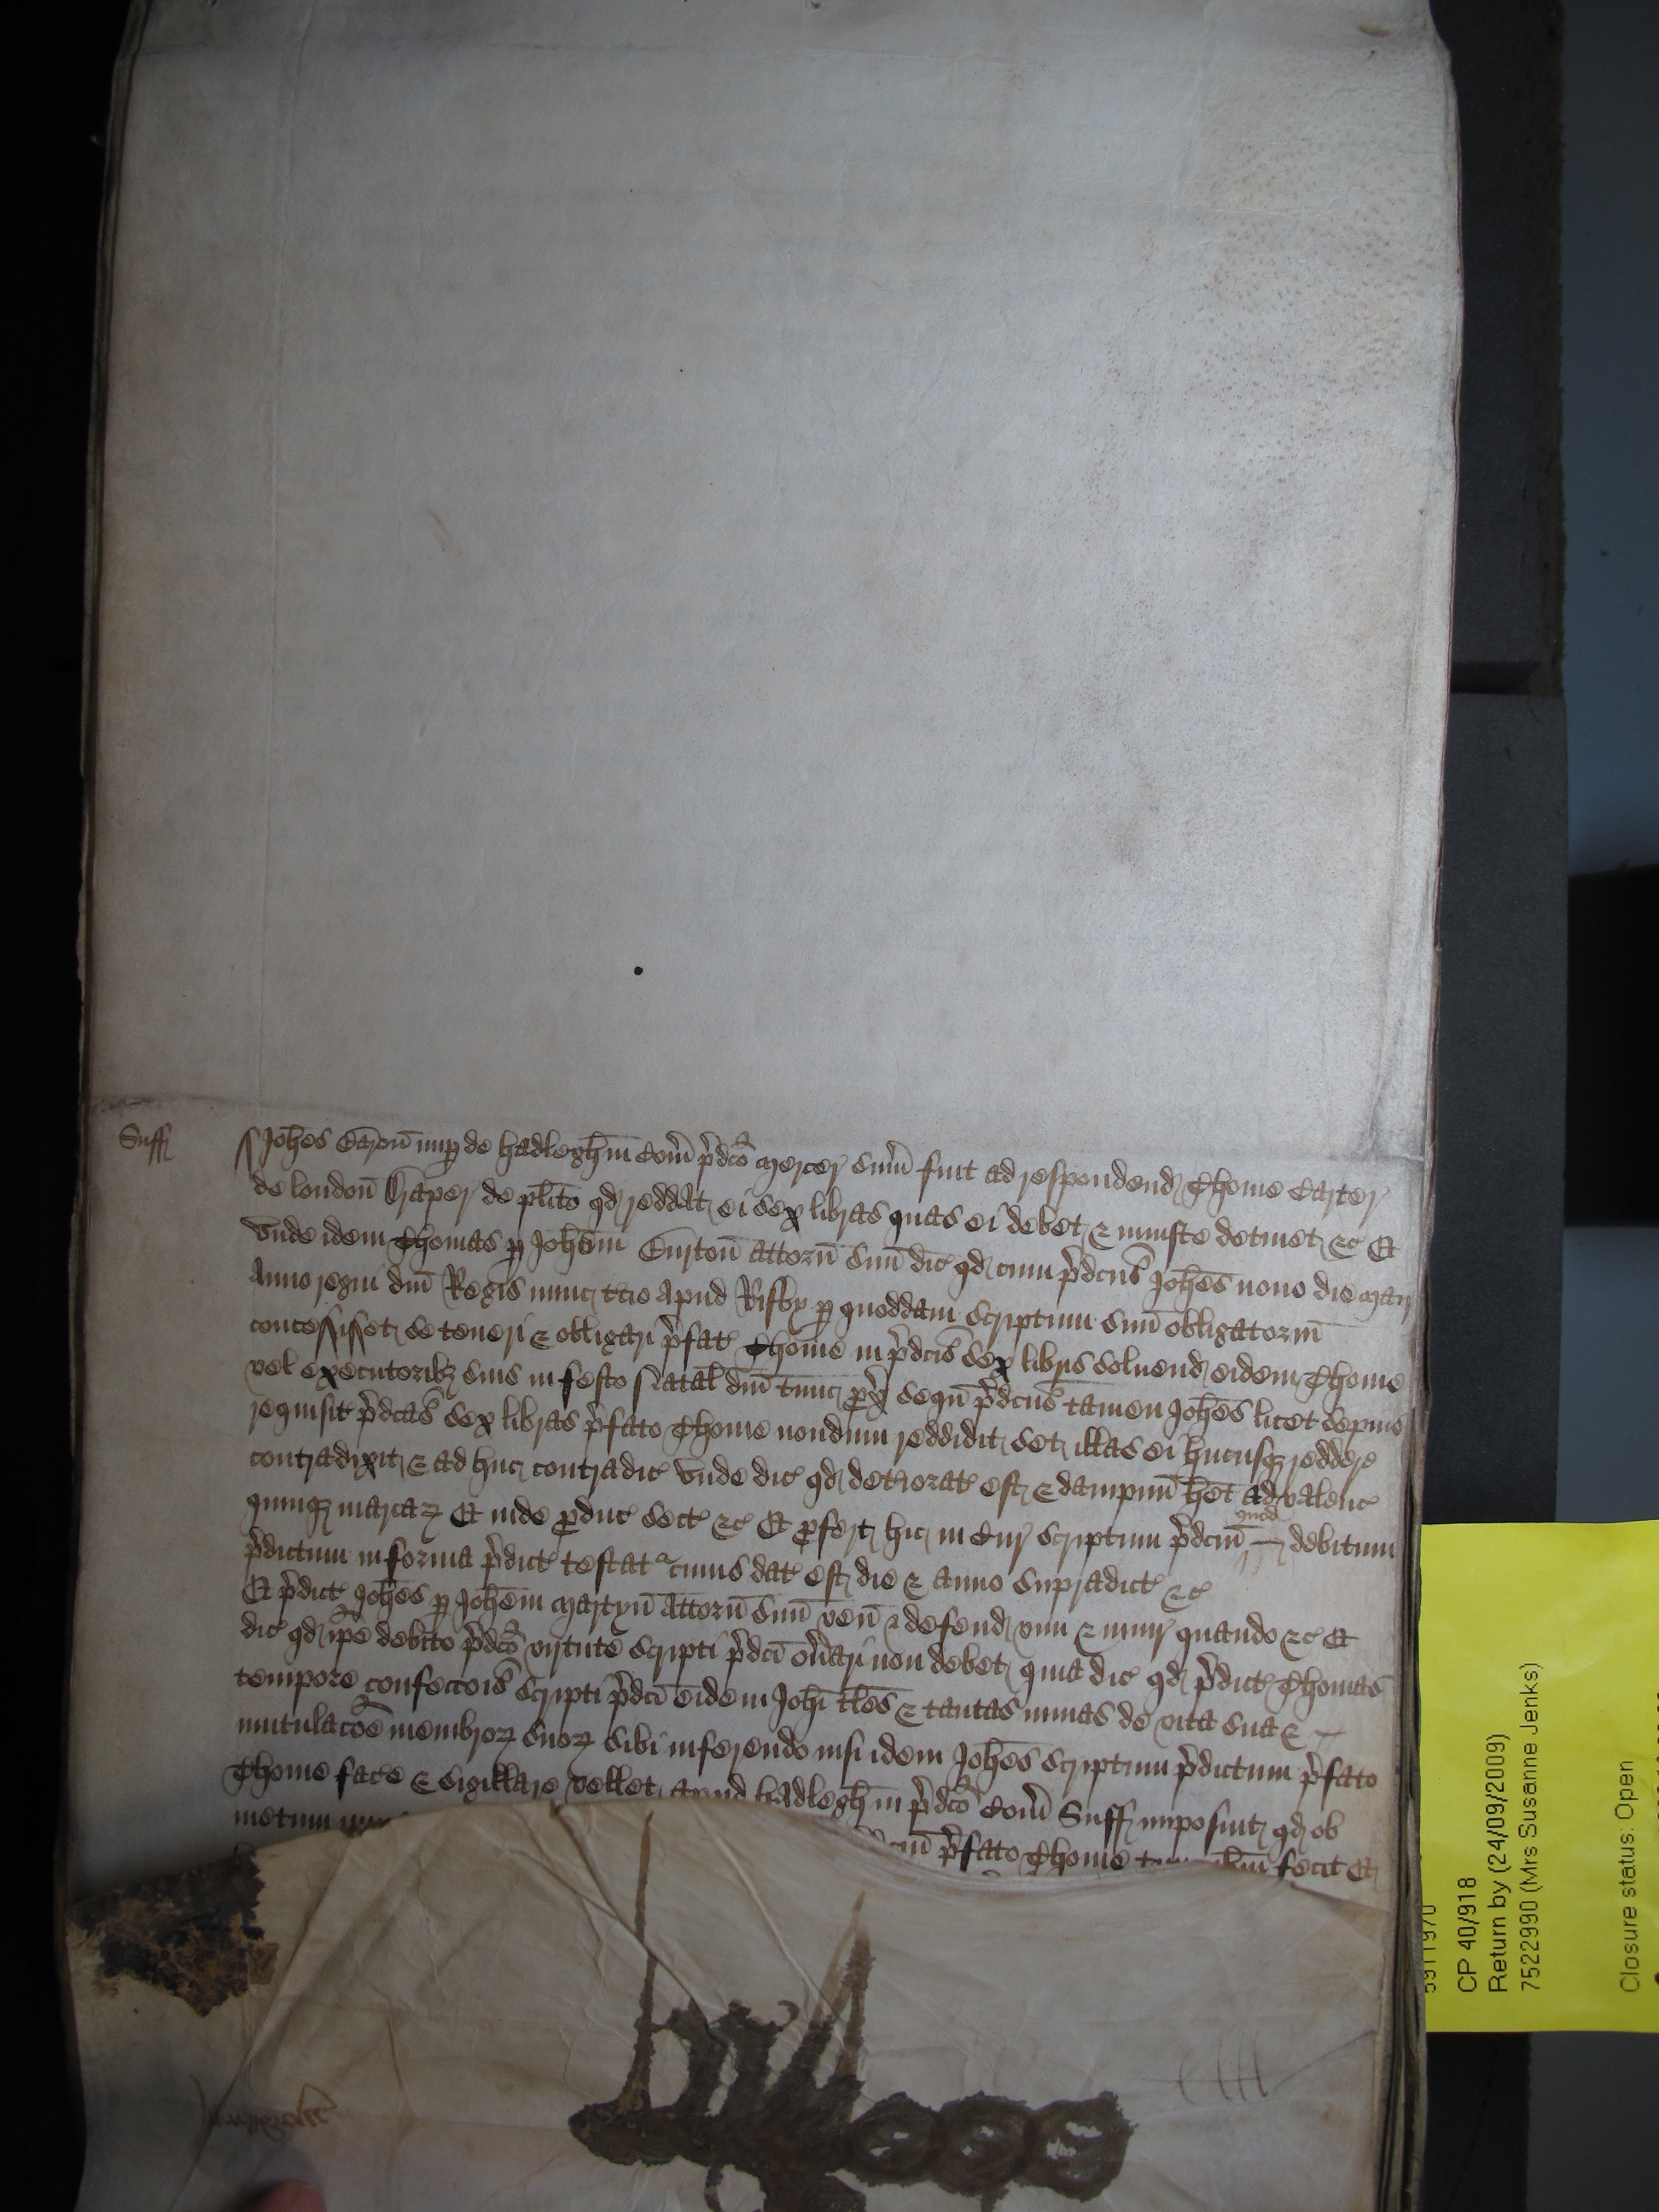 Suff
Joh̅es nup̱ de hadlegh in Com̅ p̱̅dc̅o mercer sum̅ fuit ad respondend Thome Carter
de london̅ Draper de pl̅ito qd reddat ei sex libras quas ei debet & iniuste detinet &c Et
vnde idem Thomas p̱ Joh̅em Attorn̅ suu̅ dic̅ qd cum p̱̅dcus Joh̅es nono die Maij
Anno regni dn̅i Regis nunc tc̅io apud p̱ quoddam scriptum suu̅ obligatoriu̅
concessisset se teneri & obligari p̱̅fat Thome in p̱̅dcis sex libris soluend eidem Thome
vel executorib3 suis in festo Natal dn̅i tunc p̱x sequ̅ p̱̅dcus tamen Joh̅es licet sepius
requisit p̱̅dcas sex libras p̱̅fato Thome nondum reddidit set illas ei hucusq3 reddere
contradixit & ad huc contradic̅ vnde dic̅ qd deteriorat est & dampnu̅ h̅et ad valenc̅
quinq3 marcar̅ Et inde p̱duc̅ sect̅ &c Et p̱fert hic in Cur̅ scriptum p̱̅dcu̅ quod debitum
p̱̅dictum in forma p̱̅dict̅ testat̅ cuius dat̅ est die & anno supradict̅ &c
Et p̱̅dict̅ Joh̅es p̱ Joh̅em Martyn̅ Attorn̅ suu̅ ven̅ & defend vim & iniur̅ quando &c Et
dic̅ qd ip̅e debito p̱̅dc̅o virtute scripti p̱̅dci on̅ari non debet quia dic̅ qd p̱̅dict̅ Thomas
tempore confecc̅ois scripti p̱̅dci eidem Joh̅i t̅les & tantas minas de vita sua &
mutulac̅oe membror̅ suor̅ sibi inferendo nisi idem Joh̅es scriptum p̱̅dictum p̱̅fato
Thome face & sigillare vellet apud hadlegh in p̱̅dc̅o Com̅ Suff imposuit qd ob
metum p̱̅fato Thome fecit Et
CP 40/918
Return by (24/09/2009)
7522990 (Mrs Susanne Jenks)
Closure status: Open